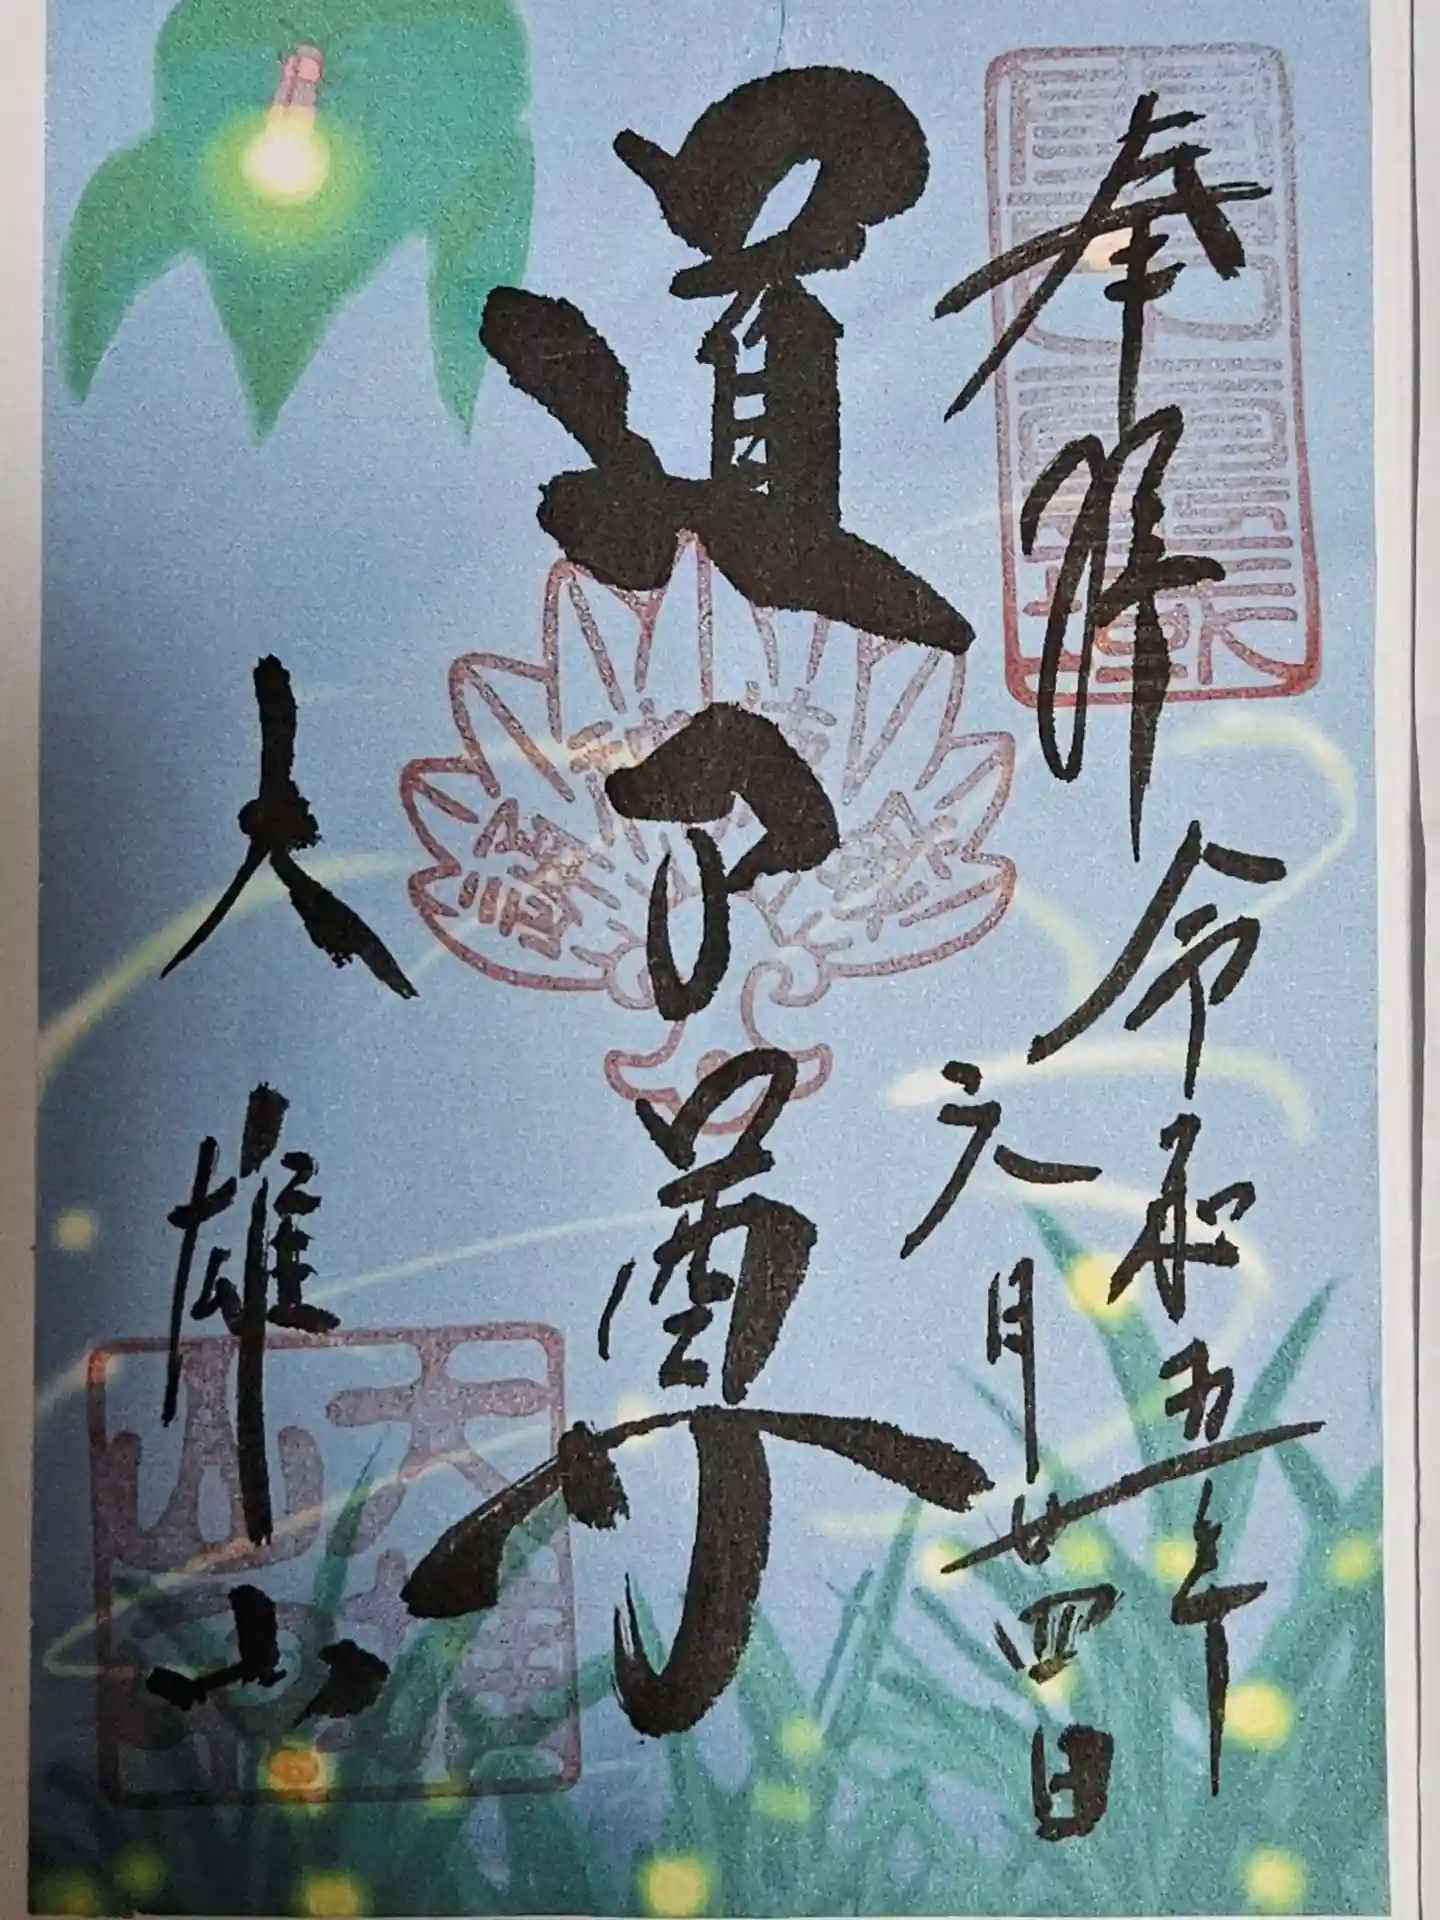 奉拝
令和五年
六月廿四日
道了尊
大雄山